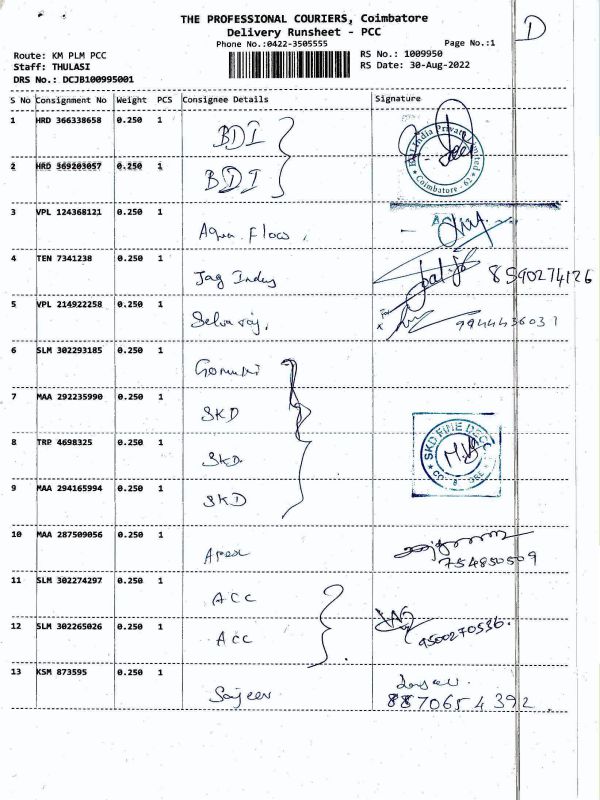 THE PROFESSIONAL COURIERS, Coimbatore
D
Delivery Runsheet - PCC
Phone No.:0422-3505555
Page No.:1
Route: KM PLM PCC
RS No.: 1009950
Staff: THULASI
RS Date: 30-Aug-2022
DRS No.: DCJB100995001
S No Consignment No Weight PCS Consignee Details Signature
1 HRD 366338658 0.250 1 BDI
India Private Limited
Coimbatore - 62
2 HRD 369203057 0.250 1 BDI
3 VPL 124368121 0.250 1 Aqua Flow
4 TEN 7341238 0.250 1 Jag Indus 8590274126
5 VPL 214922258 0.250 1 Selvaraj. For 9944436031
6 SLM 302293185 0.250 1 Gomathi
7 MAA 292235990 0.250 1 SKD
8 TRP 4698325 0.250 1 SKD
SKD FINE DECC
9 MAA 294165994 0.250 1 SKD
10 MAA 287509056 0.250 1 Apex 754850509
11 SLM 302274297 0.250 1 ACC
12 SLM 302265026 0.250 1 Acc 9500270536.
13 KSM 873595 0.250 1 Sajeev 8870654392